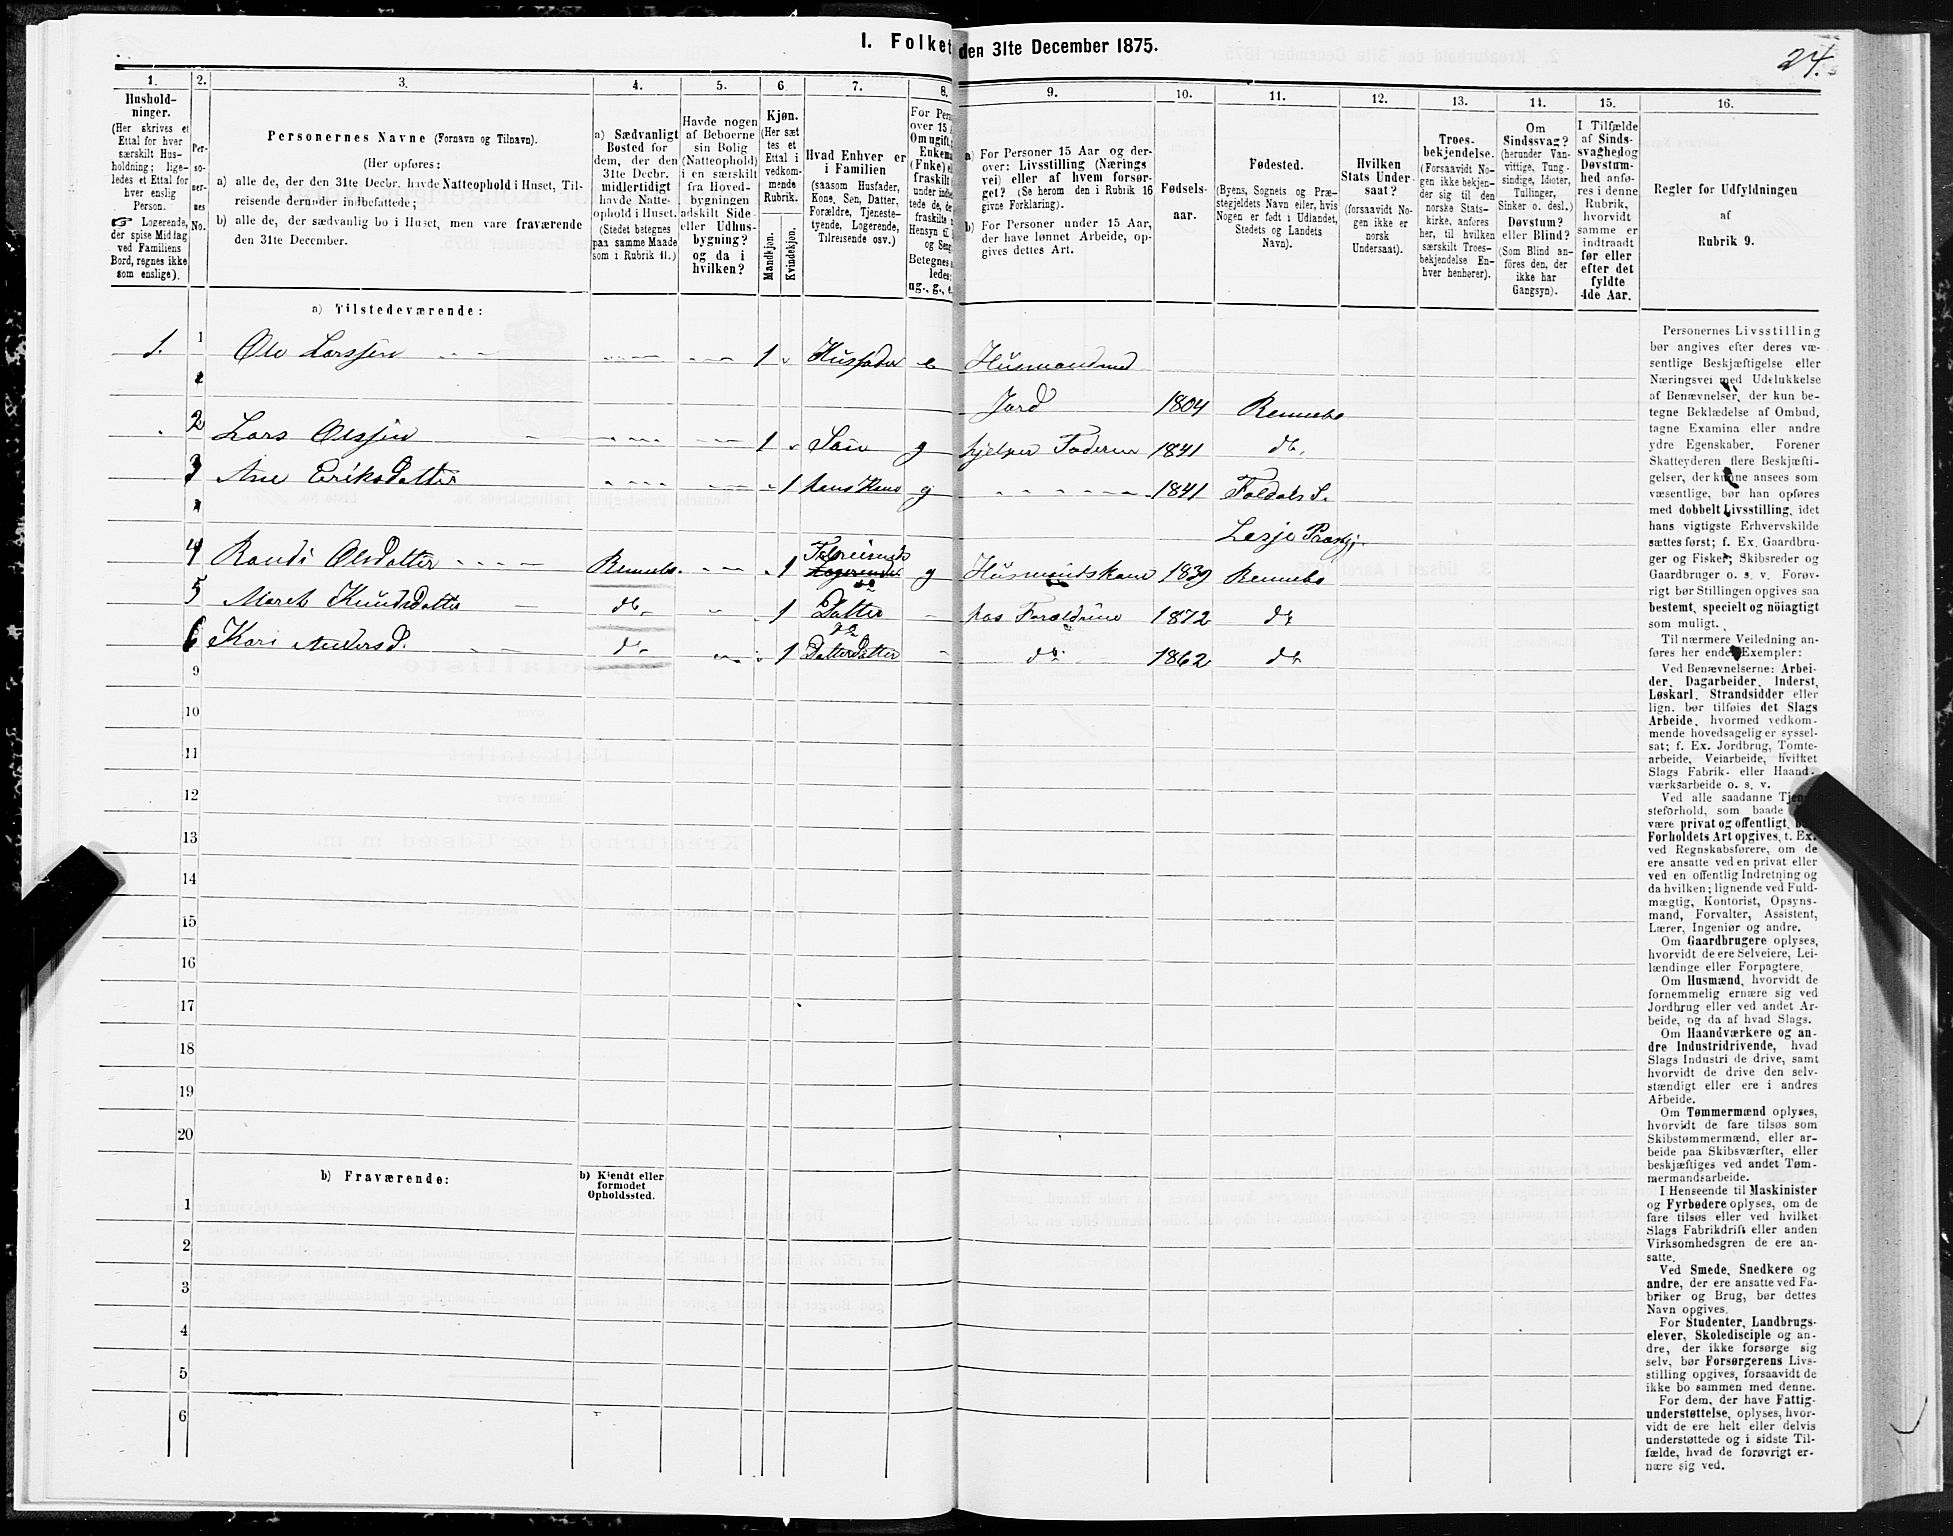 I. Folket den 31te December 1875.
24.
1. 2. 3. 4. 5. 6. 7. 8. 9. 10. 11. 12. 13. 14. 15. 16.
Hushold-
ninger.
(Her skrives et
Ettal for hver
særskilt Hus-
holdning; lige-
ledes et Ettal for
hver enslig
Person.
☞ Logerende,
der spise Middag
ved Familiens
Bord, regnes ikke
som enslige).
Per-
so-
ner-
nes
No.
Personernes Navne (Fornavn og Tilnavn).
(Her opføres:
a) alle de, der den 31te Decbr. havde Natteophold i Huset, Til-
reisende derunder indbefattede;
b) alle de, der sædvanlig bo i Huset, men vare fraværende
den 31te December.
a) Sædvanligt
Bosted for
dem, der den
31te Decbr.
midlertidigt
havde Natte-
ophold i Huset.
(Stedet betegnes
paa samme Maade
som i Rubrik 11.)
Havde nogen
af Beboerne
sin Bolig
(Natteophold)
i en særskilt
fra Hoved-
bygningen
adskilt Side-
eller Udhus-
bygning?
og da i
hvilken?
Kjøn.
(Her sæt
tes et
Ettal i
vedkom-
mende
Rubrik.
Mandkjøn.
Kvindekjøn.
Hvad Enhver er
i Familien
(saasom Husfader,
Kone, Søn, Datter,
Forældre, Tjeneste-
tyende, Logerende,
Tilreisende osv.)
For Pers
over 15 A
Om ugift,
Enkema
(Enke) el
fraskilt
under indbe
tede de, de
fraskilte
Hensyn til
og Seng
Betegnes s
ledes:
ug., g., e.
a) For Personer 15 Aar og der-
over: Livsstilling (Nærings
vei) eller af hvem forsør-
get? (Se herom den i Rubrik 16
givne Forklaring).
b) For Personer under 15 Aar,
der have lønnet Arbeide, op-
gives dettes Art.
Fødsels-
aar.
Fødested.
(Byens, Sognets og Præ-
stegjeldets Navn eller, hvis
Nogen er født i Udlandet,
Stedets og Landets
Navn).
Hvilken
Stats Under-
saat?
(forsaavidt No-
gen ikke er
norsk
Undersaat).
Troes-
bekjendelse.
(Forsaavidt No-
gen ikke bekjen-
der sig til den
norske Stats-
kirke, anføres
her, til hvilken
særskilt Troes-
bekjendelse En-
hver henhører).
Om
Sindssvag?
(herunder Van-
vittige, Tung-
sindige, Idioter,
Tullinger,
Sinker o. desl.)
Døvstum?
eller Blind?
(Som Blind an-
føres den, der
ikke har
Gangsyn).
I Tilfælde
af Sinds-
svaghed og
Døvstum-
hed anfø-
res i denne
Rubrik,
hvorvidt
samme er
indtraadt
før eller
efter det
fyldte
4de Aar.
Regler for Udfyldningen
af
Rubrik 9.
a) Tilstedeværende:
1. 1 Ole Larssen 1 Husfader e Husmand med
Jord 1804 Rennebo
2 Lars Olssen 1 Søn g hjelper Faderen 1841 do
3 Ane Eriksdatter 1 hans Kone g 1841 Foldals S.
Lesje Præstgj.
4 Randi Olsdatter Rennebo 1 Tilreisende Logerende g Husmandskone 1839 Rennebo
5 Maret Knudsdatter do 1 Datter hos Forældrene 1872 do
6 Kari Andersd. do 1 DatterDatter do 1862 do
9
10
11
12
13
14
15
16
17
18
19
20
b) Fraværende:
b) Kjendt eller
formodet
Opholdssted.
1
2
3
4
5
6
Personernes Livsstilling
bør angives efter deres væ-
sentlige Beskjæftigelse eller
Næringsvei med Udelukkelse
af Benævnelser, der kun be-
tegne Beklædelse af Ombud,
tagne Examina eller andre
ydre Egenskaber. Forener
Skatteyderen flere Beskjæfti-
gelser, der kunne ansees som
væsentlige, bør han opføres
med dobbelt Livsstilling, idet
hans vigtigste Erhvervskilde
sættes først; f. Ex. Gaardbru-
ger og Fisker; Skibsreder og
Gaardbruger o. s. v. Forøv-
rigt bør Stillingen opgives saa
bestemt, specielt og nöiagtigt
som muligt.
Til nærmere Veiledning an-
føres her endel Exempler:
Ved Benævnelserne: Arbei-
der, Dagarbeider, Inderst,
Løskarl, Strandsidder eller
lign. bør tilføies det Slags
Arbeide, hvormed vedkom-
mende hovedsagelig er syssel-
sat; f. Ex. Jordbrug, Tomte-
arbeide, Veiarbeide, hvilket
Slags Fabrik- eller Haand-
værksarbeide o. s. v.
Ved alle saadanne Tjene-
steforhold, som baade kan
være privat og offentligt, bør
Forholdets Art opgives, t. Ex.
ved Regnskabsførere, om de
ere ansatte ved en privat eller
ved en offentlig Indretning og
da hvilken; lignende ved Fuld-
mægtig, Kontorist, Opsyns-
mand, Forvalter, Assistent,
Lærer, Ingeniør og andre.
Om Gaardbrugere oplyses,
hvorvidt de ere Selveiere, Lei-
lændinge eller Forpagtere.
Om Husmænd, hvorvidt de
fornemmelig ernære sig ved
Jordbrug eller ved andet Ar-
beide, og da af hvad Slags.
Om Haandværkere og an-
dre Industridrivende, hvad
Slags Industri de drive, samt
hvorvidt de drive den selv-
stændigt eller ere i andres
Arbeide.
Om Tømmermænd oplyses,
hvorvidt de fare tilsøs som
Skibstømmermænd, eller ar-
beide paa Skibsværfter, eller
beskjæftiges ved andet Tøm-
mermandsarbeide.
I Henseende til Maskinister
og Fyrbødere oplyses, om de
fare tilsøs eller ved hvilket
Slags Fabrikdrift eller anden
Virksomhedsgren de ere an-
satte.
Ved Smede, Snedkere og
andre, der ere ansatte ved Fa-
briker og Brug, bør dettes
Navn opgives.
For Studenter, Landbrugs-
elever, Skoledisciple og an-
dre, der ikke forsørge sig
selv, bør Forsørgerens Livs-
stilling opgives, forsaavidt de
ikke bo sammen med denne.
For dem, der have Fattig-
understøttelse, oplyses, hvor-
vidt de ere helt eller delvis
understøttede og i sidste Til-
fælde, hvad de forøvrigt er-
nære sig ved.